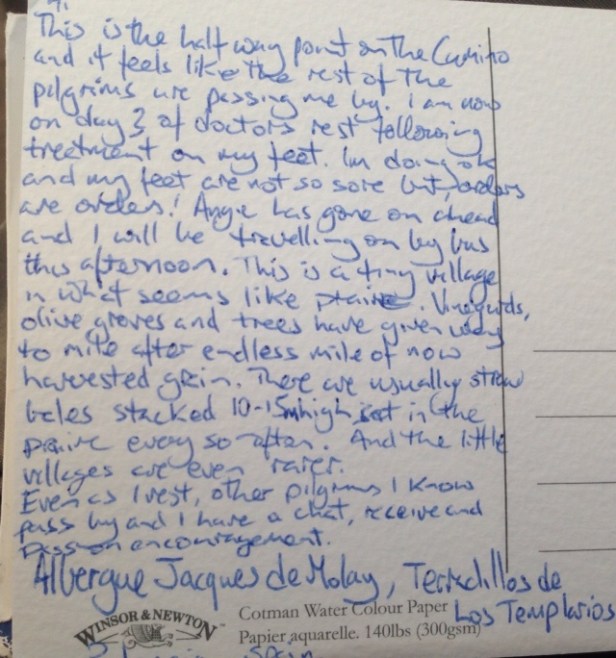 This is the half way point on the Camino
and it feels like the rest of the
pilgrims are passing me by. I am now
on day 3 of doctors rest following
treatment on my feet. Im doing ok
and my feet are not so sore but, orders
are orders! Angie has gone on ahead
and I will be travelling on by bus
this afternoon. This is a tiny village
in what seems like prairie. Vineyards,
olive groves and trees have given way
to mile after endless mile of now
harvested grain. There are usually straw
bales stacked 10-15m high in the
prairie every so often. And the little
villages are even rarer.
Even as I rest, other pilgrims I know
pass by and I have a chat, receive and
pass on encouragement.
Albergue Jacques de Molay, Terradillos de
Los Templarios
WINSOR & NEWTON™
Cotman Water Colour Paper
Papier aquarelle. 140lbs (300gsm)
Spain